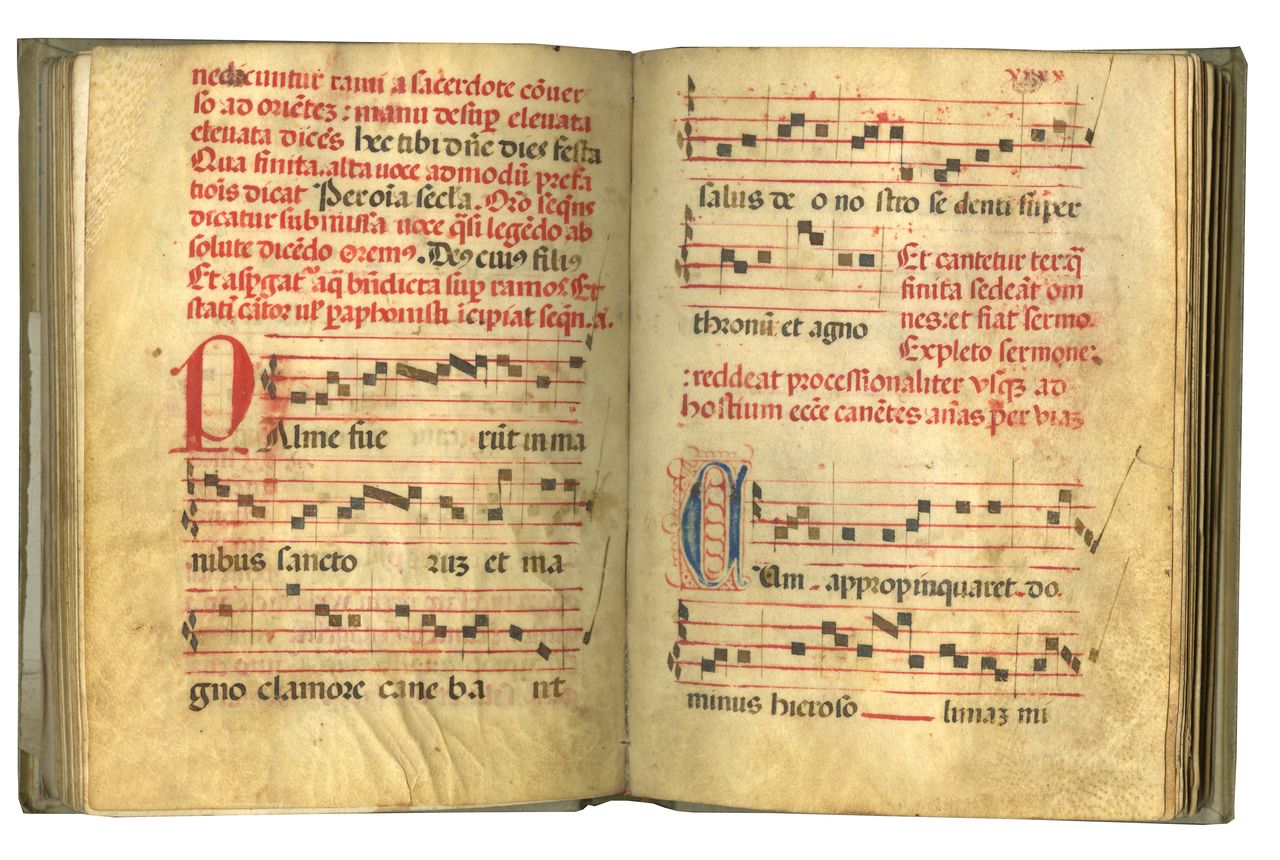 nedicuntur rami a sacerdote cōuer
so ad oriētez : manu desup eleuata
eleuata dicēs hec tibi dn̄e dies festa
Qua finita. alta uoce ad modū prefa
tiōis dicat Per oīa secl̄a. Orō seqn̄s
dicatur submissa uoce q̄si legēdo ab
solute dicēdo oremꝰ. Deꝰ cuiꝰ filiꝰ
Et aspgat aq̄ bn̄dicta sup ramos. Et
statī cātor ul' paphonisti īcipiat seqn.ā.
PAlme fue rūt in ma
nibus sancto ruz et ma
gno clamore cane ba nt
xxxx
salus de o no stro se denti super
thronū et agno
Et cantetur ter.q̄
finita sedeāt om
nes: et fiat sermo.
Expleto sermone:
: reddeat processionaliter vsqz ad
hostium ecc̄e canētes an̄as per viaz
CUm appropinquaret do
minus hieroso limaz mi